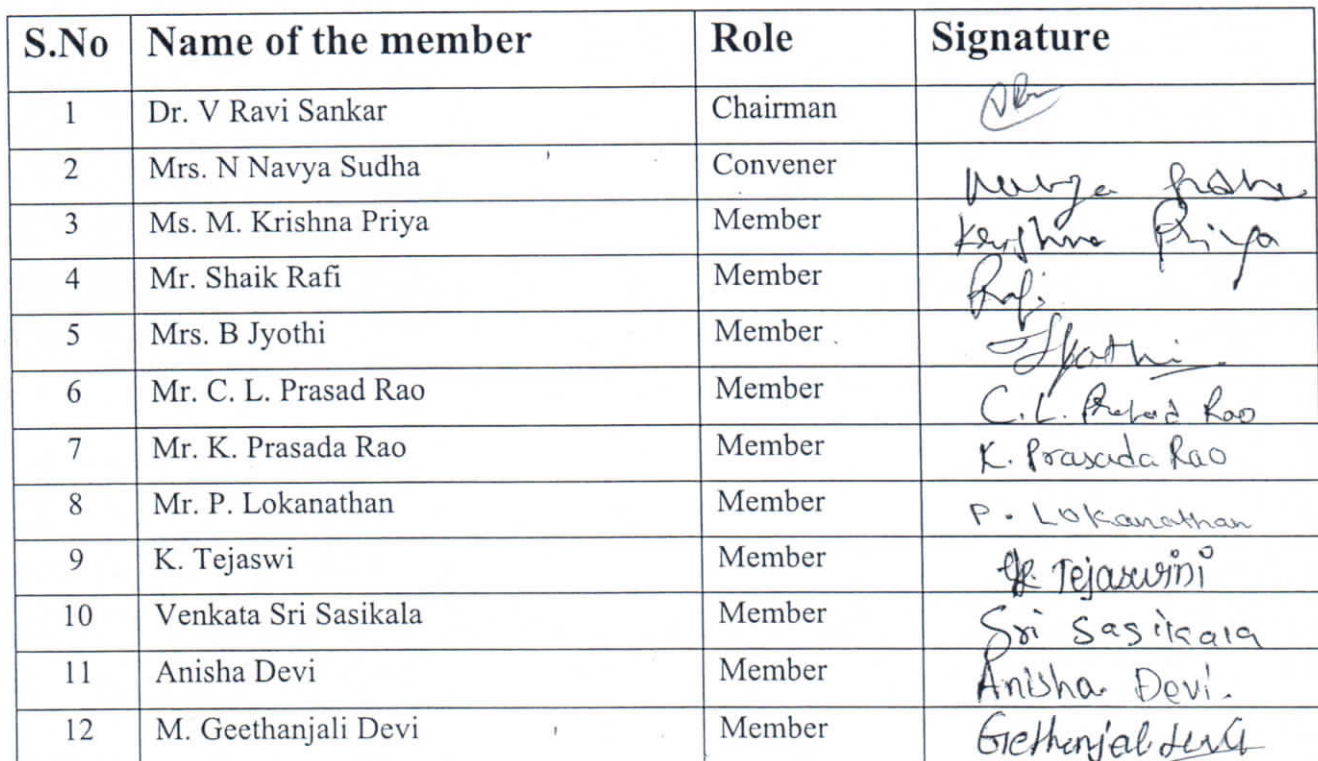 S.No Name of the member Role Signature
1 Dr. V Ravi Sankar Chairman
2 Mrs. N Navya Sudha Convener
3 Ms. M. Krishna Priya Member Krishna Priya
4 Mr. Shaik Rafi Member Rafi
5 Mrs. B Jyothi Member Jyothi
6 Mr. C. L. Prasad Rao Member C. L. Prasad Rao
7 Mr. K. Prasada Rao Member K. Prasada Rao
8 Mr. P. Lokanathan Member P. Lokanathan
9 K. Tejaswi Member K. Tejaswini
10 Venkata Sri Sasikala Member Sri Sasikala
11 Anisha Devi Member Anisha Devi.
12 M. Geethanjali Devi Member